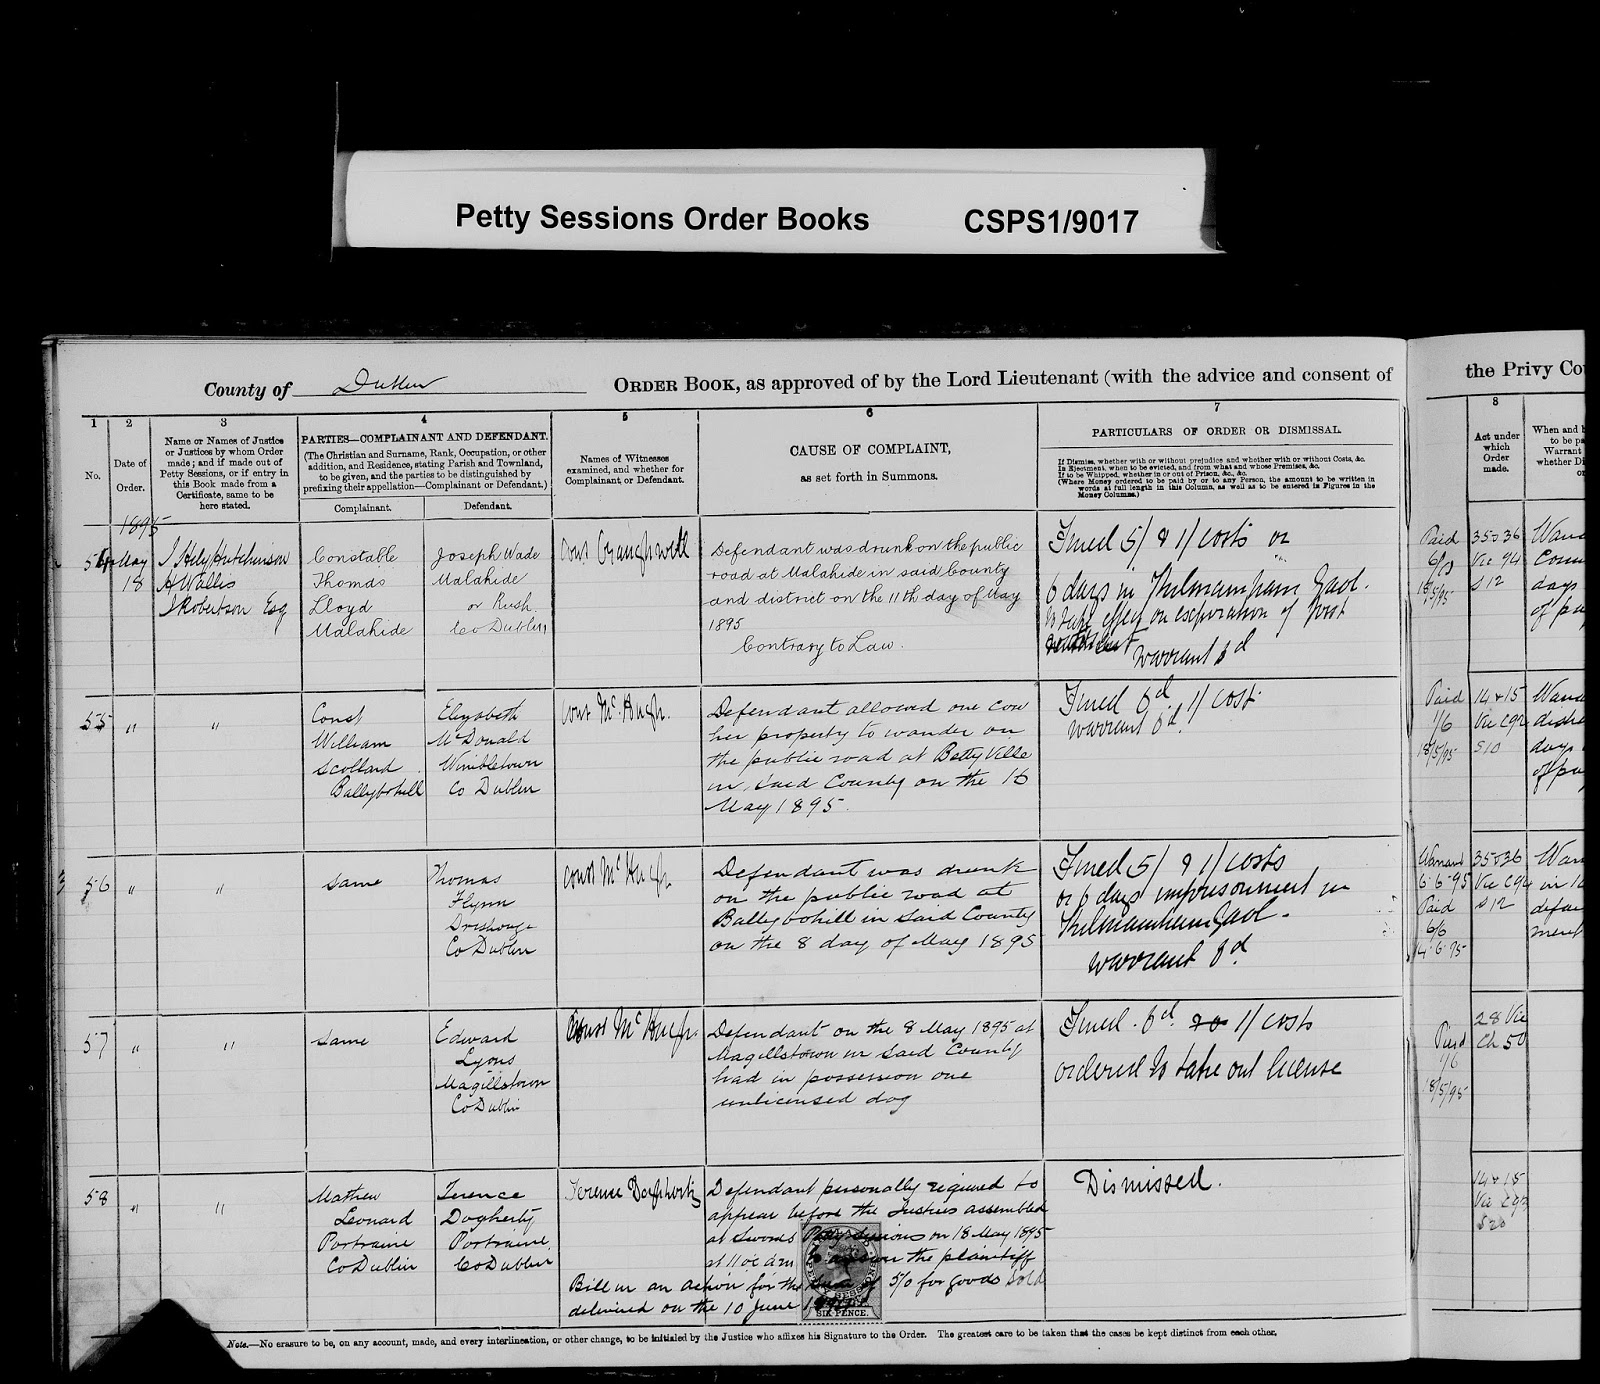 Petty Sessions Order Books CSPS1/9017
County of Dublin ORDER BOOK, as approved of by the Lord Lieutenant (with the advice and consent of
the Privy Cou
1 2 3 4 5 6 7 8
No.
Date of
Order.
Name or Names of Justice
or Justices by whom Order
made; and if made out of
Petty Sessions, or if entry in
this Book made from a
Certificate, same to be
here stated.
PARTIES—COMPLAINANT AND DEFENDANT.
(The Christian and Surname, Rank, Occupation, or other
addition, and Residence, stating Parish and Townland,
to be given, and the parties to be distinguished by
prefixing their appellation—Complainant or Defendant.)
Complainant. Defendant.
Names of Witnesses
examined, and whether for
Complainant or Defendant.
CAUSE OF COMPLAINT,
as set forth in Summons.
PARTICULARS OF ORDER OR DISMISSAL.
If Dismiss, whether with or without prejudice and whether with or without Costs, &c.
In Ejectment, when to be evicted, and from what and whose Premises, &c.
If to be Whipped, whether in or out of Prison, &c., &c.
(Where Money ordered to be paid by or to any Person, the amount to be written in
words at full length in this Column, as well as to be entered in Figures in the
Money Columns.)
Act under
which
Order
made.
When and b
to be pa
Warrant
whether Di
1895
54
May
18
J Hely Hutchinson
H Wallis
J Robertson Esq
Constable
Thomas
Lloyd
Malahide
Joseph Wade
Malahide
or Rush
Co Dublin
Const
Defendant was drunk on the public
road at Malahide in said County
and district on the 11th day of May
1895
Contrary to Law.
Fined 5/ & 1/ costs or
6 days in Kilmainham Gaol.
to take effect on expiration of first
warrant 6d
Paid
6/6
18/5/95
35 & 36
Vic 94
S 12
Warr
days
of pay
55 " "
Const
William
Scollard
Ballybohill
Elizabeth
McDonald
Wimbletown
Co Dublin
Const McHugh.
Defendant allowed one cow
her property to wander on
the public road at BettyVille
in said County on the 16
May 1895.
Fined 6d 1/ cost
warrant 6d
Paid
1/6
18/5/95
14 & 15
Vic C92
S10
Warr
days
of pay
56 " "
same
Thomas
Flynn
Co Dublin
Const McHugh
Defendant was drunk
on the public road at
Ballybohill in said County
on the 8 day of May 1895
Fined 5/ & 1/ costs
or 6 days imprisonment in
Kilmainham Gaol.
warrant 6d
Warrant
6.6.95
Paid
6/6
14.6.95
35 & 36
Vic C94
S12
Warr
in
defau
ment
57 " "
same
Edward
Lyons
Magillstown
Co Dublin
Const McHugh.
Defendant on the 8 May 1895 at
Magillstown in said County
had in possession one
unlicensed dog
Fined. 6d. 1/ costs
ordered to take out license
Paid
1/6
18/5/95
28 Vic
Ch 50
58 " "
Mathew
Leonard
Portraine
Co Dublin
Terence
Dogherty
Portraine
Co Dublin
Terence Dogherty
Defendant personally required to
appear before the Justices assembled
at Swords Petty Sessions on 18 May 1895
at 11 oc am to answer the plaintiff
Bill in an action for the sum of 5/0 for goods sold
delivered on the 10 June
Dismissed.
14 & 15
Vic
SIX PENCE.
Note.—No erasure to be, on any account, made, and every interlineation, or other change, to be initialed by the Justice who affixes his Signature to the Order. The greatest care to be taken that the cases be kept distinct from each other.